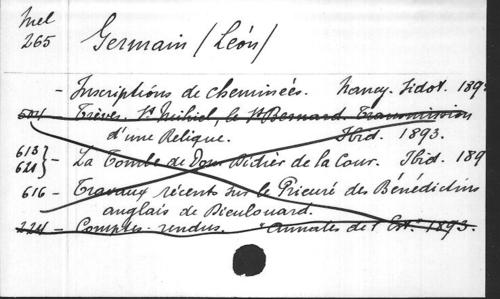 Mel
265
Germain (Léon)
- Inscriptions de cheminées. Nancy. Sidot. 189
504 - Trèves. St Mihiel, le St Bernard. Transmission
d'une Relique. Ibid. 1893.
613
621 } - La Tombe de Dom Didier de la Cour. Ibid. 189
616 - Travaux récents sur le Prieuré des Bénédictins
anglais de Dieulouard.
224 - Comptes-rendus. Annales de l'Est. 1893.